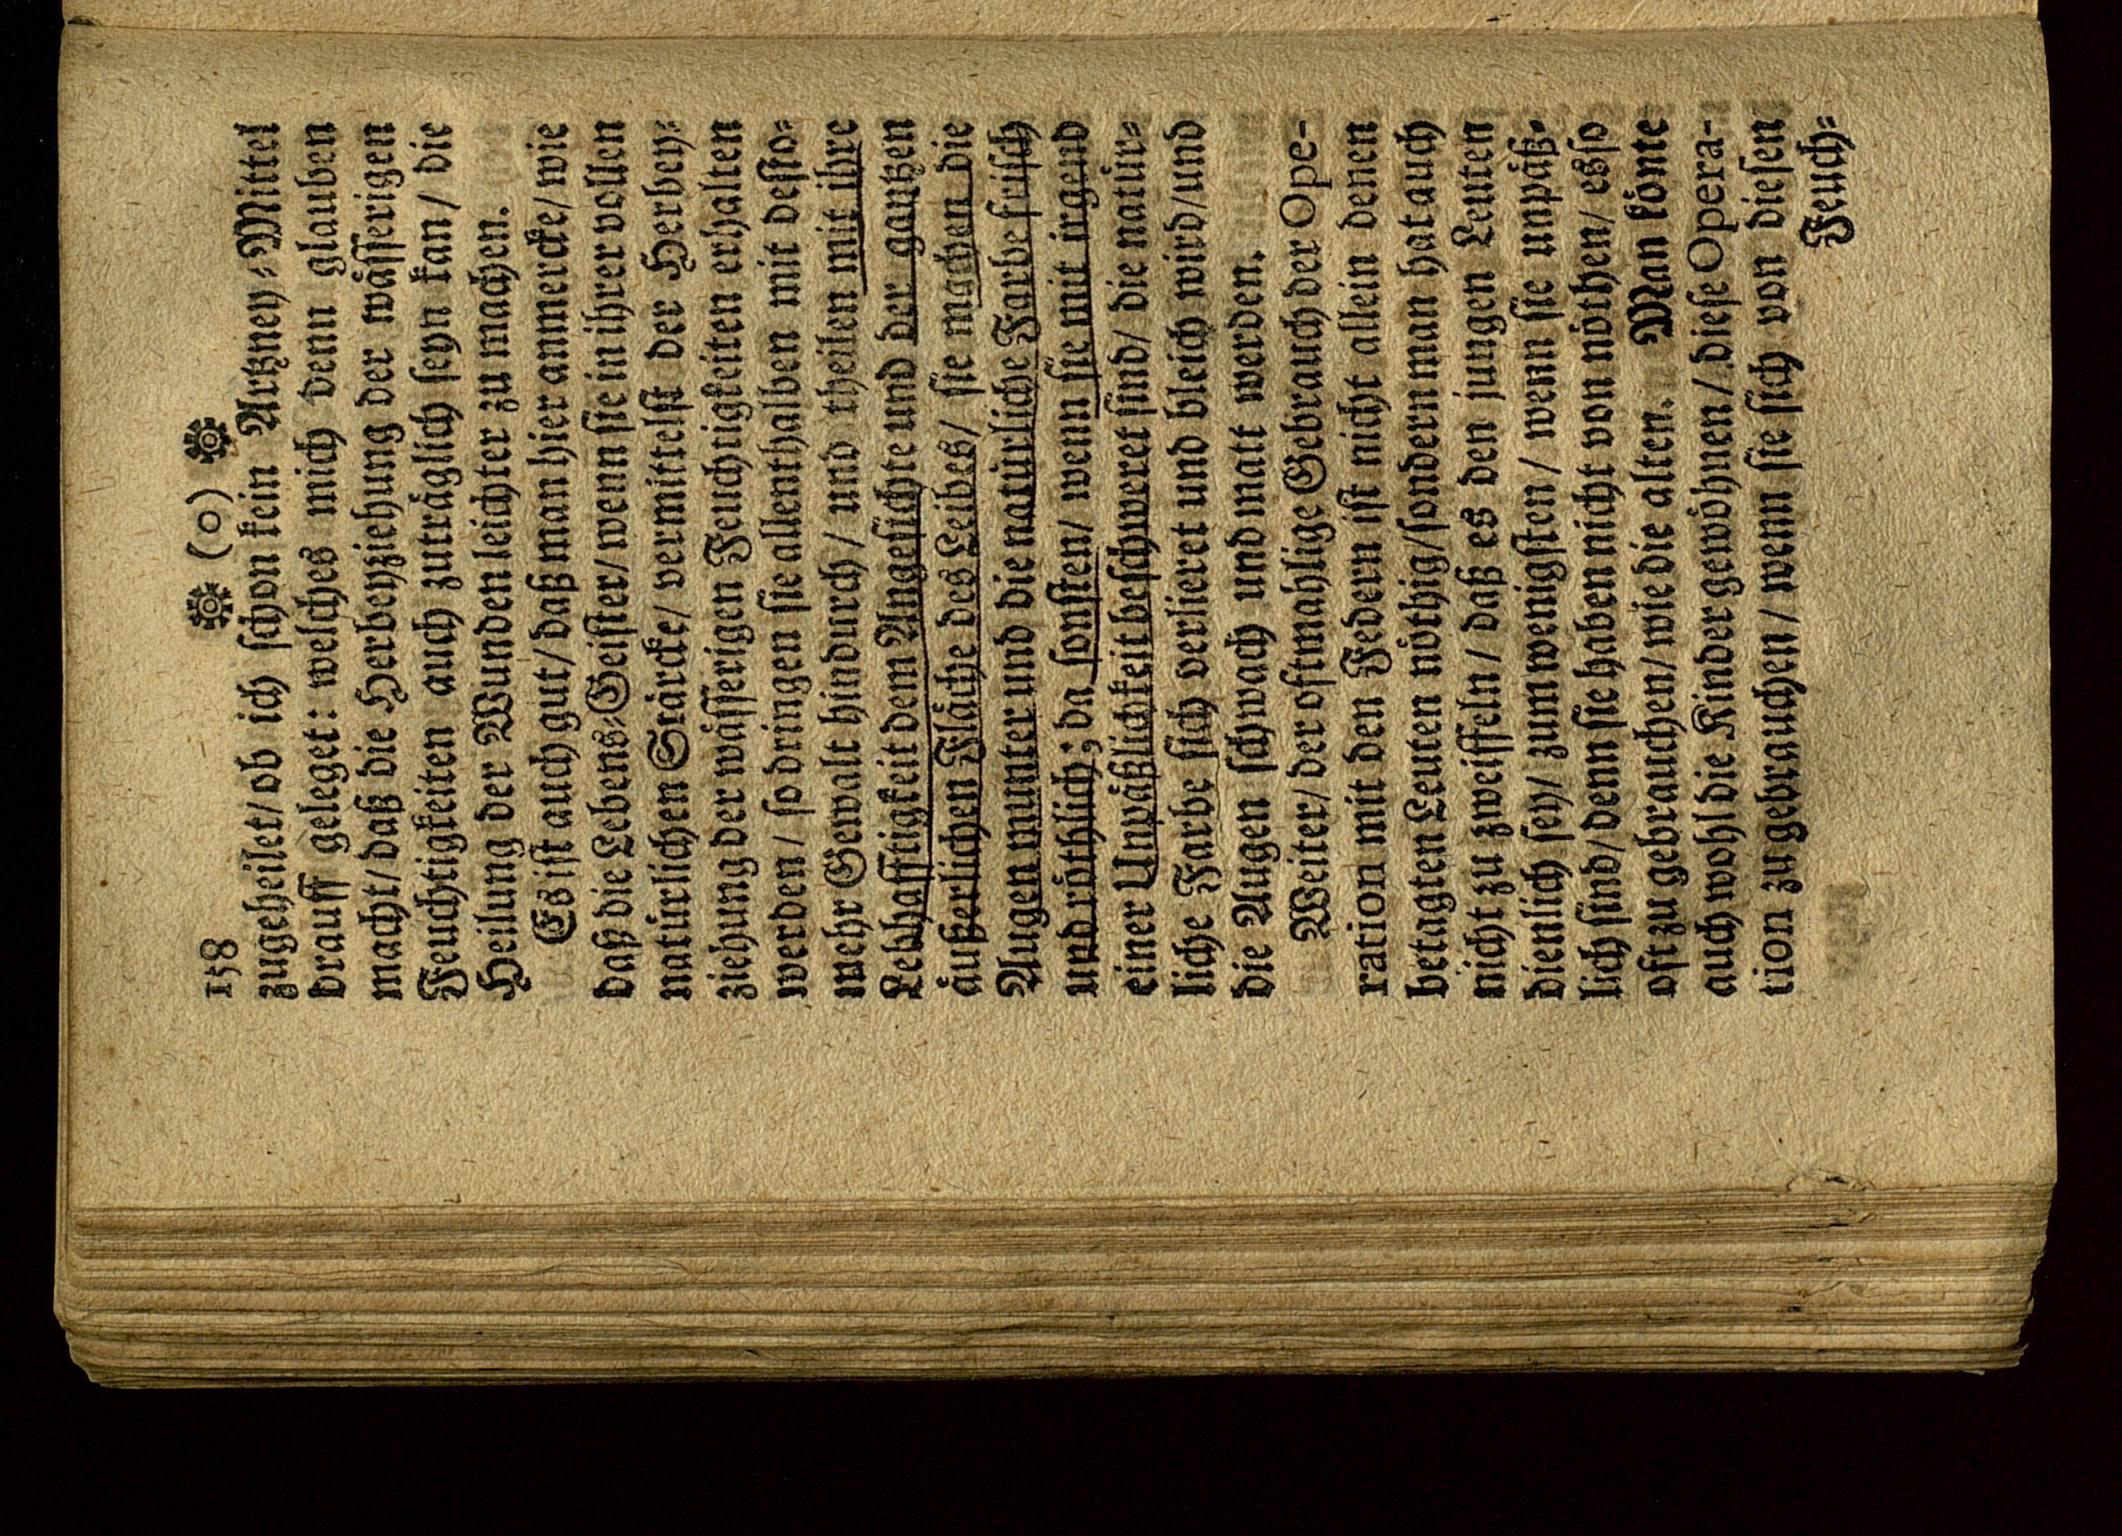 158 ❁ (0) ❁
zugeheilet/ ob ich schon kein Artzney-Mittel
drauff geleget: welches mich denn glauben
macht/ daß die Herbeyziehung der wässerigen
Feuchtigkeiten auch zuträglich seyn kan/ die
Heilung der Wunden leichter zu machen.
Es ist auch gut/ daß man hier anmercke/ wie
daß die Lebens-Geister/ wenn sie in ihrer vollen
natürlichen Stärcke/ vermittelst der Herbey-
ziehung der wässerigen Feuchtigkeiten erhalten
werden/ so dringen sie allenthalben mit desto-
mehr Gewalt hindurch/ und theilen mit ihre
Lebhafftigkeit dem Angesichte und der gantzen
äußerlichen Fläche des Leibes/ sie machen die
Augen munter und die natürliche Farbe frisch
und röthlich; da sonsten/ wenn sie mit irgend
einer Unpäßlichkeit beschweret sind/ die natür-
liche Farbe sich verlieret und bleich wird/ und
die Augen schwach und matt werden.
Weiter/ der oftmahlige Gebrauch der Ope-
ration mit den Federn ist nicht allein denen
betagten Leuten nöthig/ sondern man hat auch
nicht zu zweiffeln/ daß es den jungen Leuten
dienlich sey/ zum wenigsten/ wenn sie unpäß-
lich sind/ denn sie haben nicht von nöthen/ es so
oft zu gebrauchen/ wie die alten. Man könte
auch wohl die Kinder gewöhnen/ diese Opera-
tion zu gebrauchen/ wenn sie sich von diesen
Feuch-